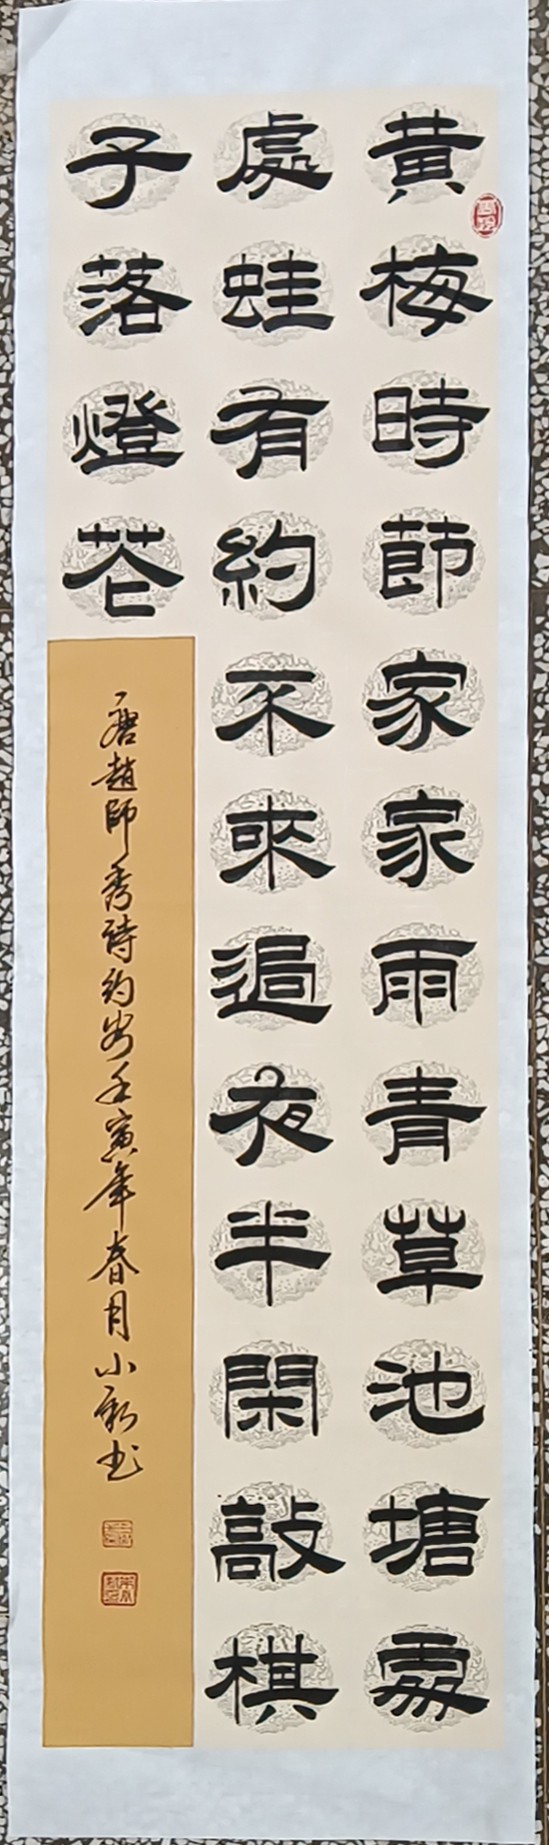 黄梅時節家家雨青草池塘處
處蛙有約不來過夜半閑敲棋
子落燈花
唐趙師秀詩約客壬寅年春月小新书